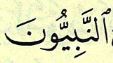 ٱلنَّبِيُّونَ